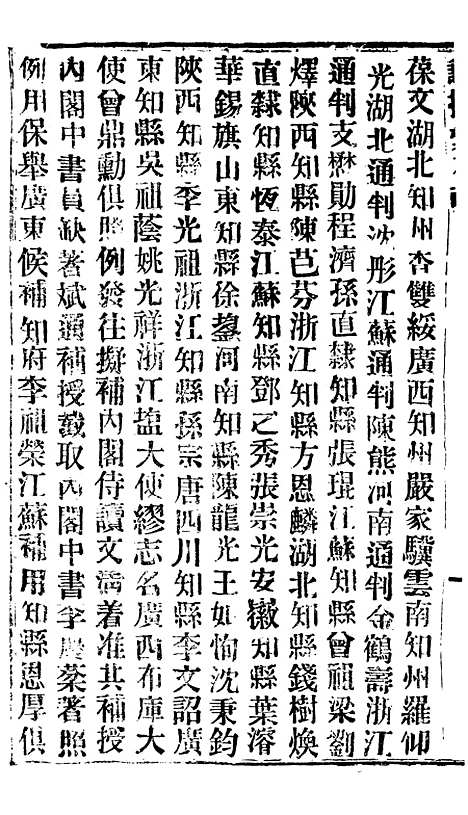 葆文湖北知州杏雙綏廣西知州嚴家驥雲南知州羅仰
光湖北通判沈彤江蘇通判陳熊河南通判金鶴壽浙江
通判支懋勛程濟孫直隸知縣張琨江蘇知縣曾祖梁劉
燡陝西知縣陳芭芬浙江知縣方恩麟湖北知縣錢樹煥
直隸知縣恆泰江蘇知縣鄧之秀張崇光安徽知縣葉溶
華錫旗山東知縣徐鋆河南知縣陳龍光王如恂沈秉鈞
陝西知縣李光祖浙江知縣孫宗唐四川知縣李文詔廣
東知縣吳祖蔭姚光祥浙江鹽大使繆志名廣西布庫大
使曾鼎勳俱照例發往擬補內閣侍讀文濤着准其補授
內閣中書員缺著斌通補授截取內閣中書李蔾著照
例用保舉廣東候補知府李祖榮江蘇補用知縣恩厚俱